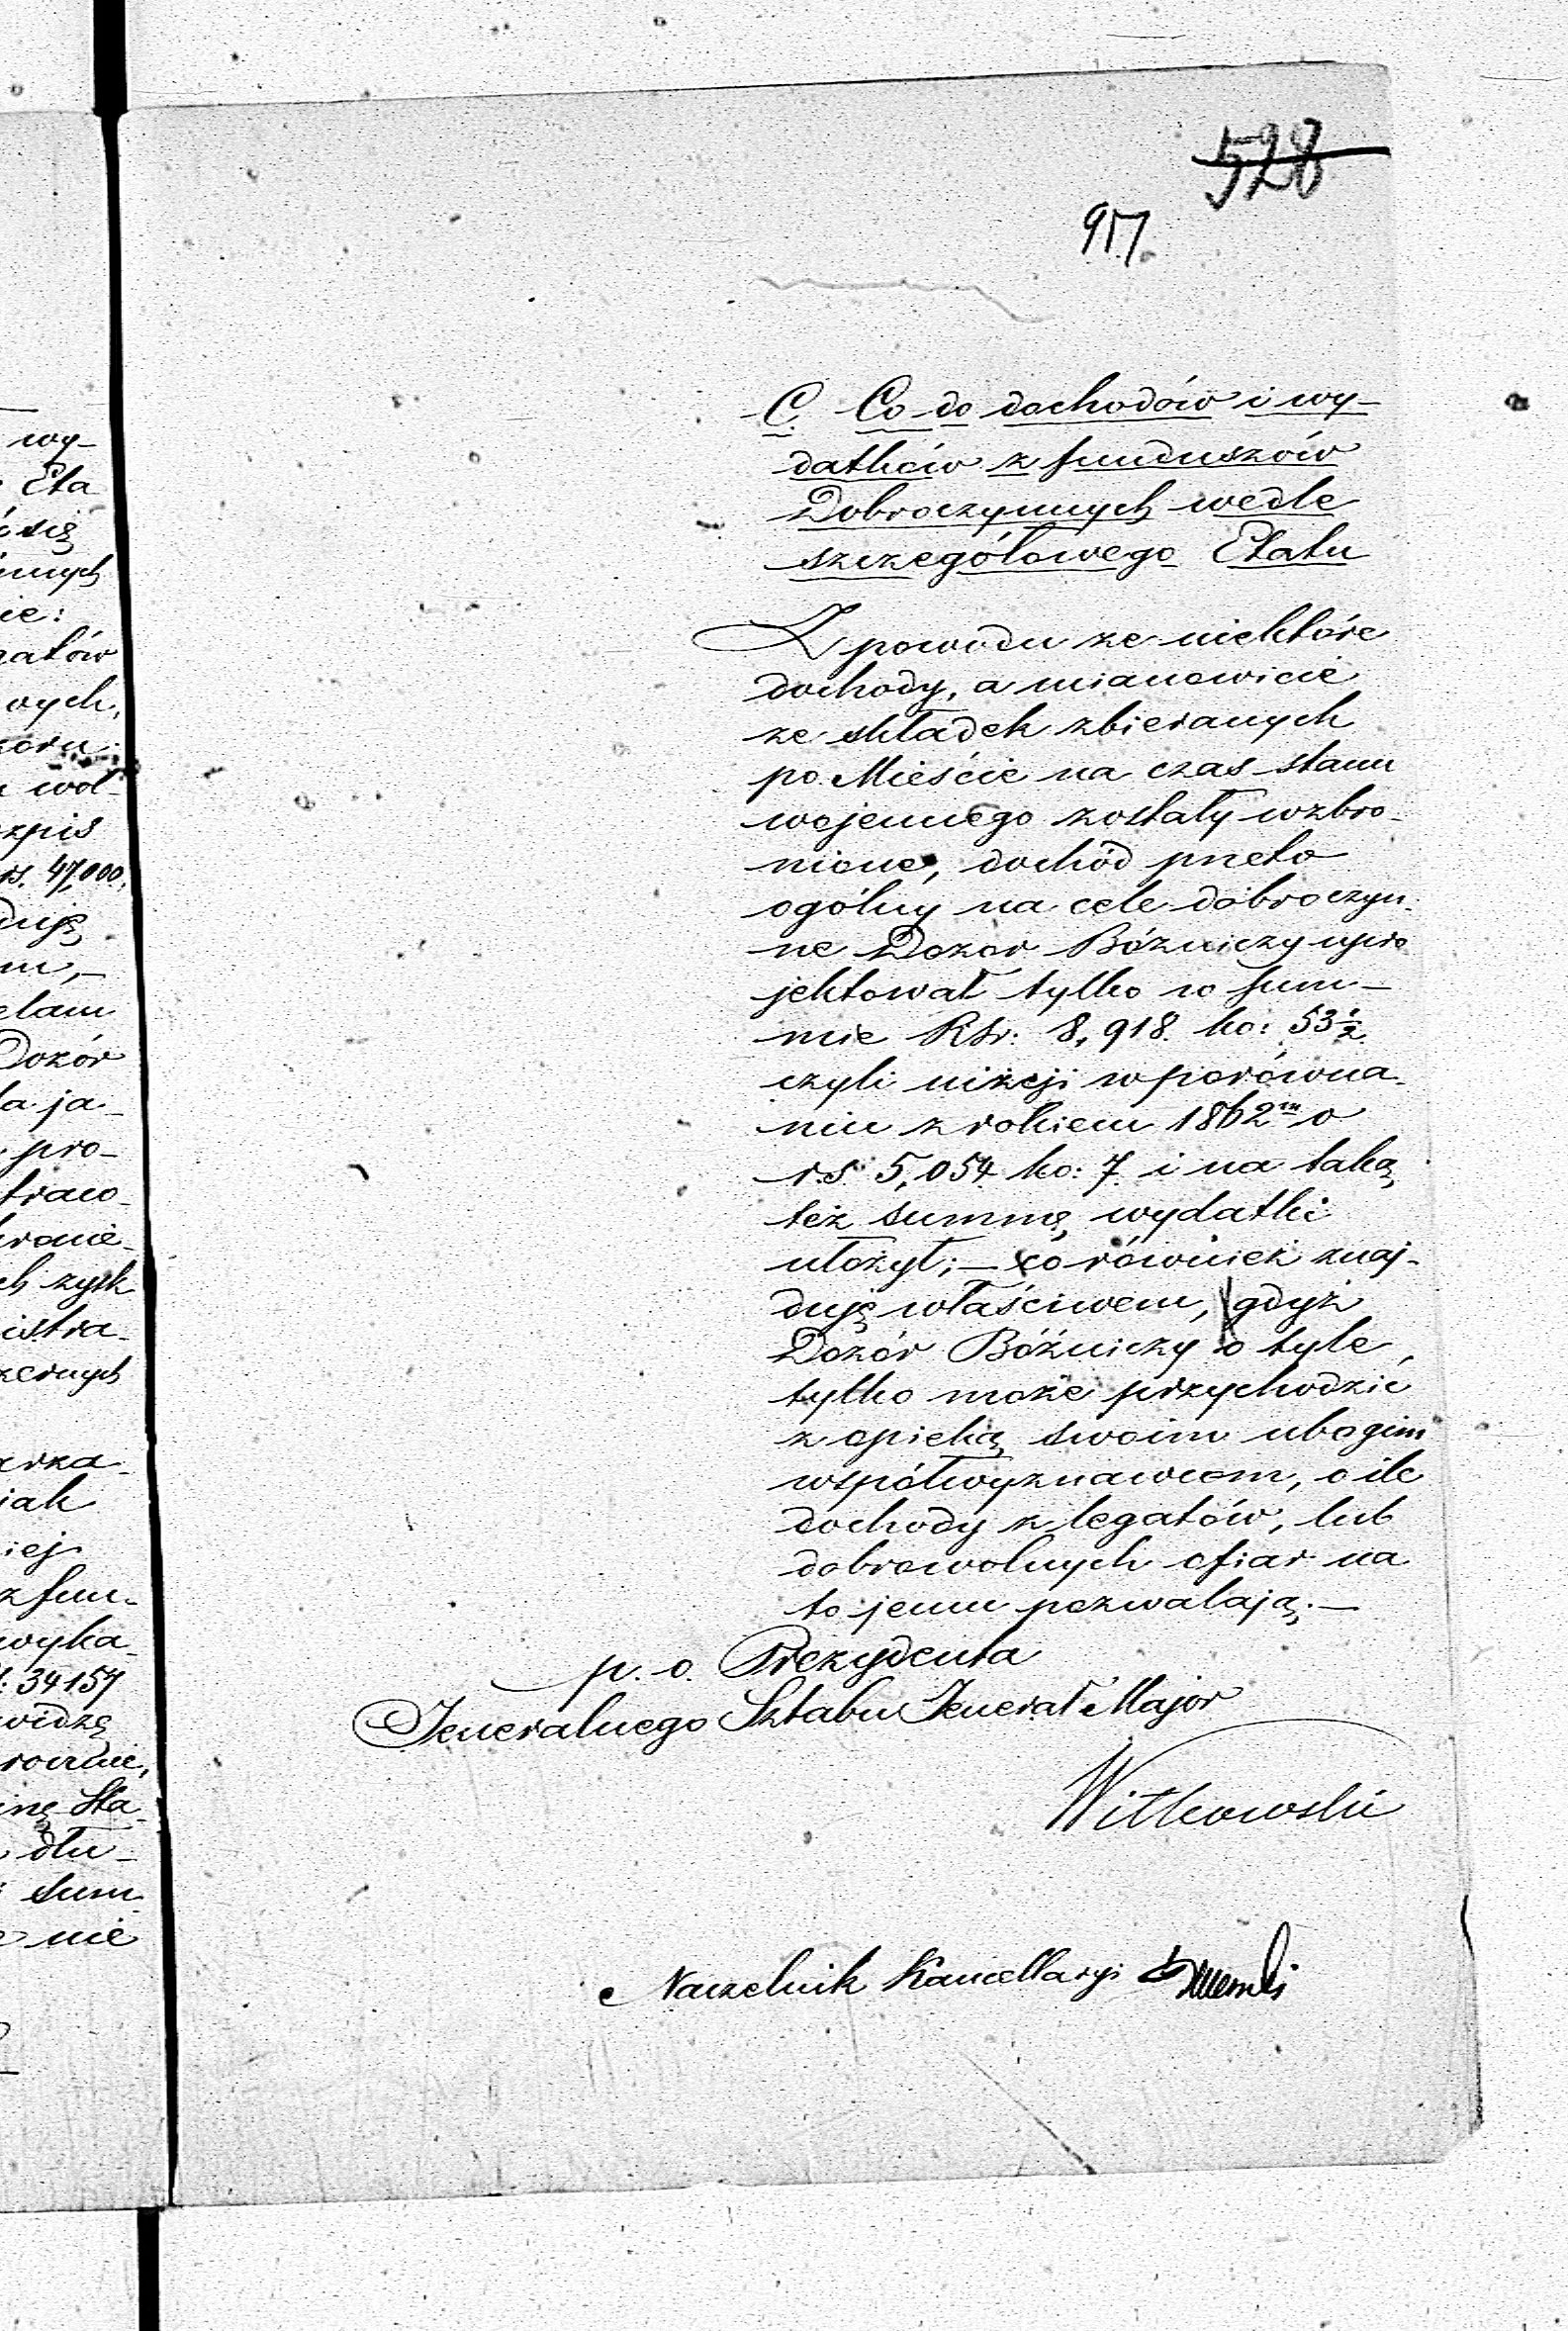 528
917.
C. Co do dochodów i wy-
datków z funduszów
Dobroczynnych wedle
szczegółowego Etatu
Z powodu że niektóre
dochody, a mianowicie
ze składek zbieranych
po Mieście na czas stanu
wojennego zostały wzbro-
nione, dochód prze​to
ogólny na cele dobroczyn-
ne Dozór Bóżniczy upro
jektował tylko w sum-
mie Rsr: 8,918. ko: 53½
czyli niżej w porówna-
niu z rokiem 1862m o
r.s. 5,054 ko: 7. i na taką
też summę wydatki
ułożył; – co również znaj-
duję właściwem, gdyż
Dozór Bóźniczy o tyle
tylko może przychodzić
z opieką swoim ubogim
współwyznawcom, o ile
dochody z legatów, lub
dobrowolnych ofiar na
to jemu pozwalają. –
p. o. Prezydenta
Jeneralnego Sztabu Jenerał Major
Witkowski
Naczelnik Kancellaryi
wy-
Eta
się
ie:
gatów
wych,
wol-
zpis
rs. 47,000.
duję
Dozór
la ja-
pro-
istra-
jak
iej
z fun-
wyka-
34154
widzę
dłu-
sum-
nie